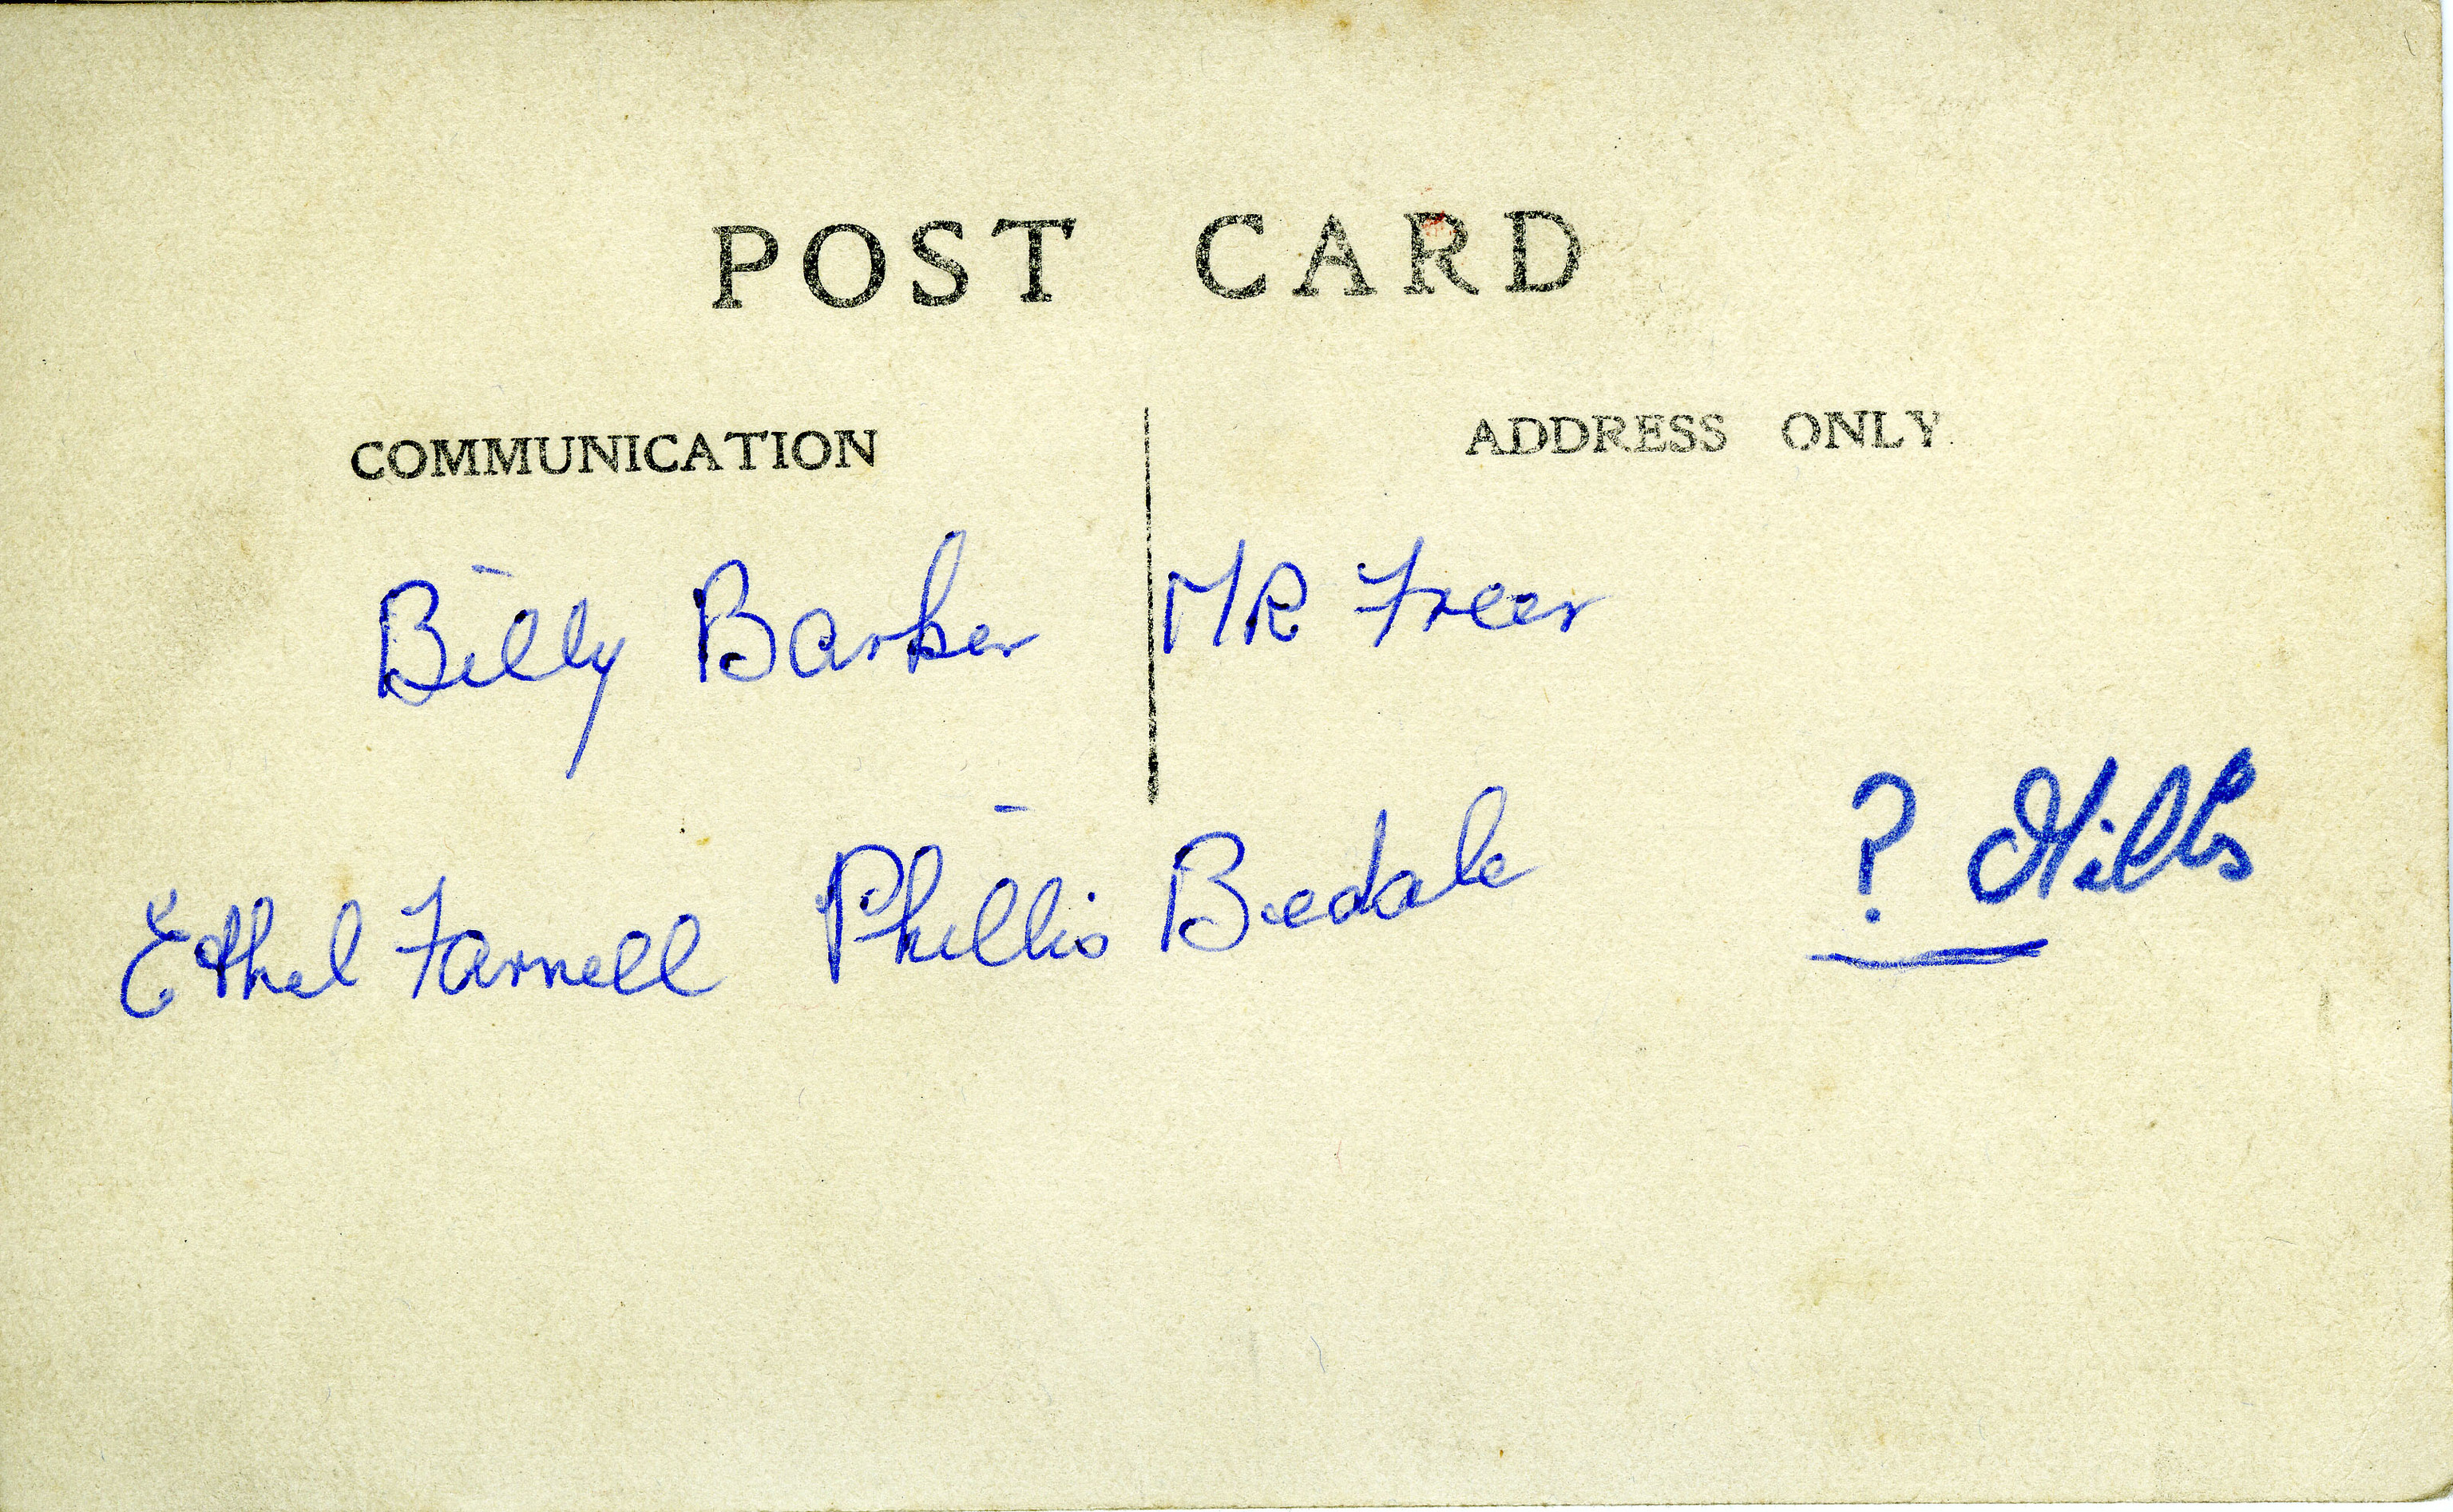 POST CARD
COMMUNICATION ADDRESS ONLY
Billy Barker MR Freer
Ethel Farnell Phillis Beedale ? Hills